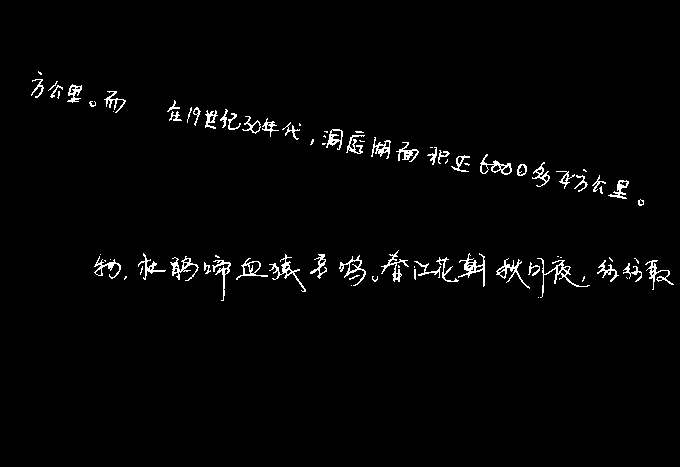 方公里。而 在19世纪30年代，洞庭湖面积达6000多平方公里。
物，杜鹃啼血猿哀鸣。春江花朝秋月夜，往往取